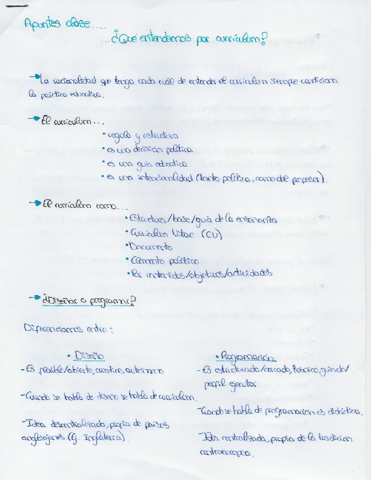 Apuntes clase....
...¿Qué entendemos por currículum?
La racionalidad que tenga cada cual de entender el currículum siempre condiciona
la práctica educativa.
El currículum...
• regula y estructura
• es una decisión política
• es una guía educativa
• es una intencionalidad (tanto política, como del profesor).
El currículum como...
• Estructura/base/guía de la enseñanza
• Currículum Vitae (CV)
• Documento
• Elemento político
• Es contenidos/objetivos/actividades
¿Diseñar o programar?
Diferenciamos entre:
• Diseño
- Es flexible/abierto, creativo, autónomo
- Cuando se habla de diseño se habla de currículum.
- Idea descentralizada, propia de países
anglosajones (Ej. Inglaterra).
• Programación
- Es estructurado/cerrado, técnico, guiado/
papel ejecutor
- Cuando se habla de programación es didáctica.
- Idea centralizada, propia de la tradición
centroeuropea.